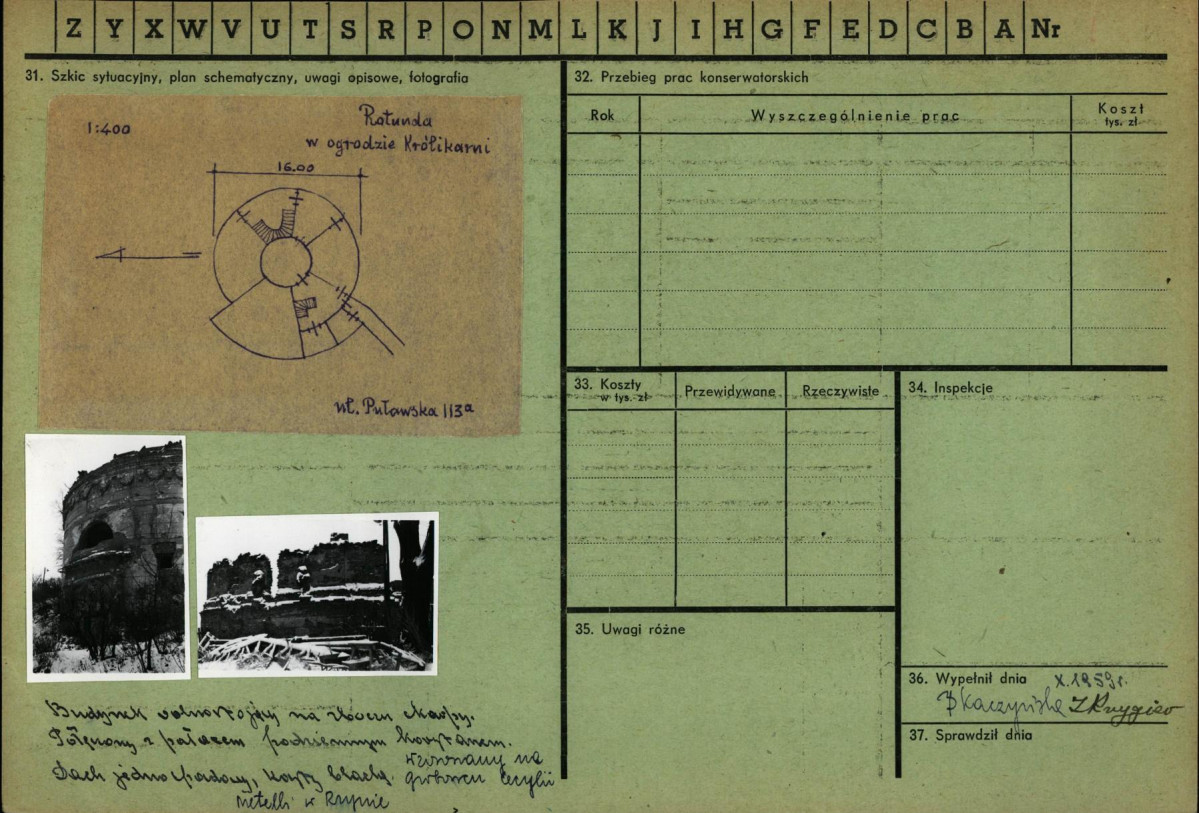 Z Y X W V U T S R P O N M L K J I H G F E D C B A Nr
31. Szkic sytuacyjny, plan schematyczny, uwagi opisowe, fotografia
1:400
Rotunda
w ogrodzie Królikarni
16.00
ul. Puławska 113a
Budynek wolnostojący na zboczu skarpy.
Połączony z pałacem podziemnym korytarzem.
Dach jednospadowy, kryty blachą. wzorowany na
grobowcu Cecylii
Metelli w Rzymie
32. Przebieg prac konserwatorskich
Rok
Wyszczególnienie prac
Koszt
tys. zł
33. Koszty
w tys. zł
Przewidywane
Rzeczywiste
34. Inspekcje
35. Uwagi różne
36. Wypełnił dnia X.1959r.
37. Sprawdził dnia